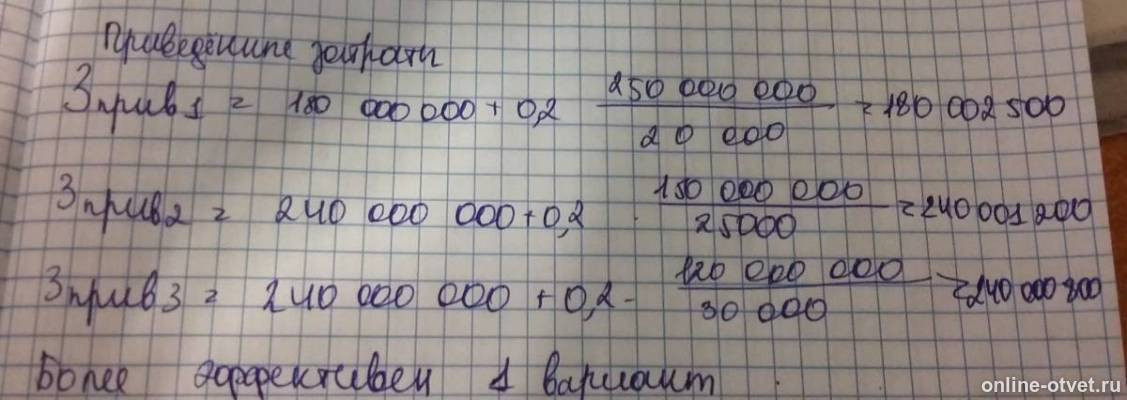 Приведённые затраты
Зприв1 = 180 000 000 + 0,2 250 000 000 / 20 000 = 180 002 500
Зприв2 = 240 000 000 + 0,2 · 150 000 000 / 25000 = 240 001 200
Зприв3 = 240 000 000 + 0,2 · 120 000 000 / 30 000 = 240 000 800
Более эффективен 1 вариант
online-otvet.ru